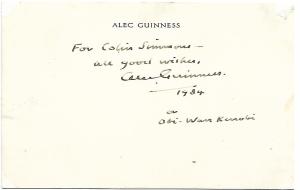 ALEC GUINNESS
For Colin Simmons —
all good wishes,
Alec Guinness.
1984
a
Obi-Wan Kenobi